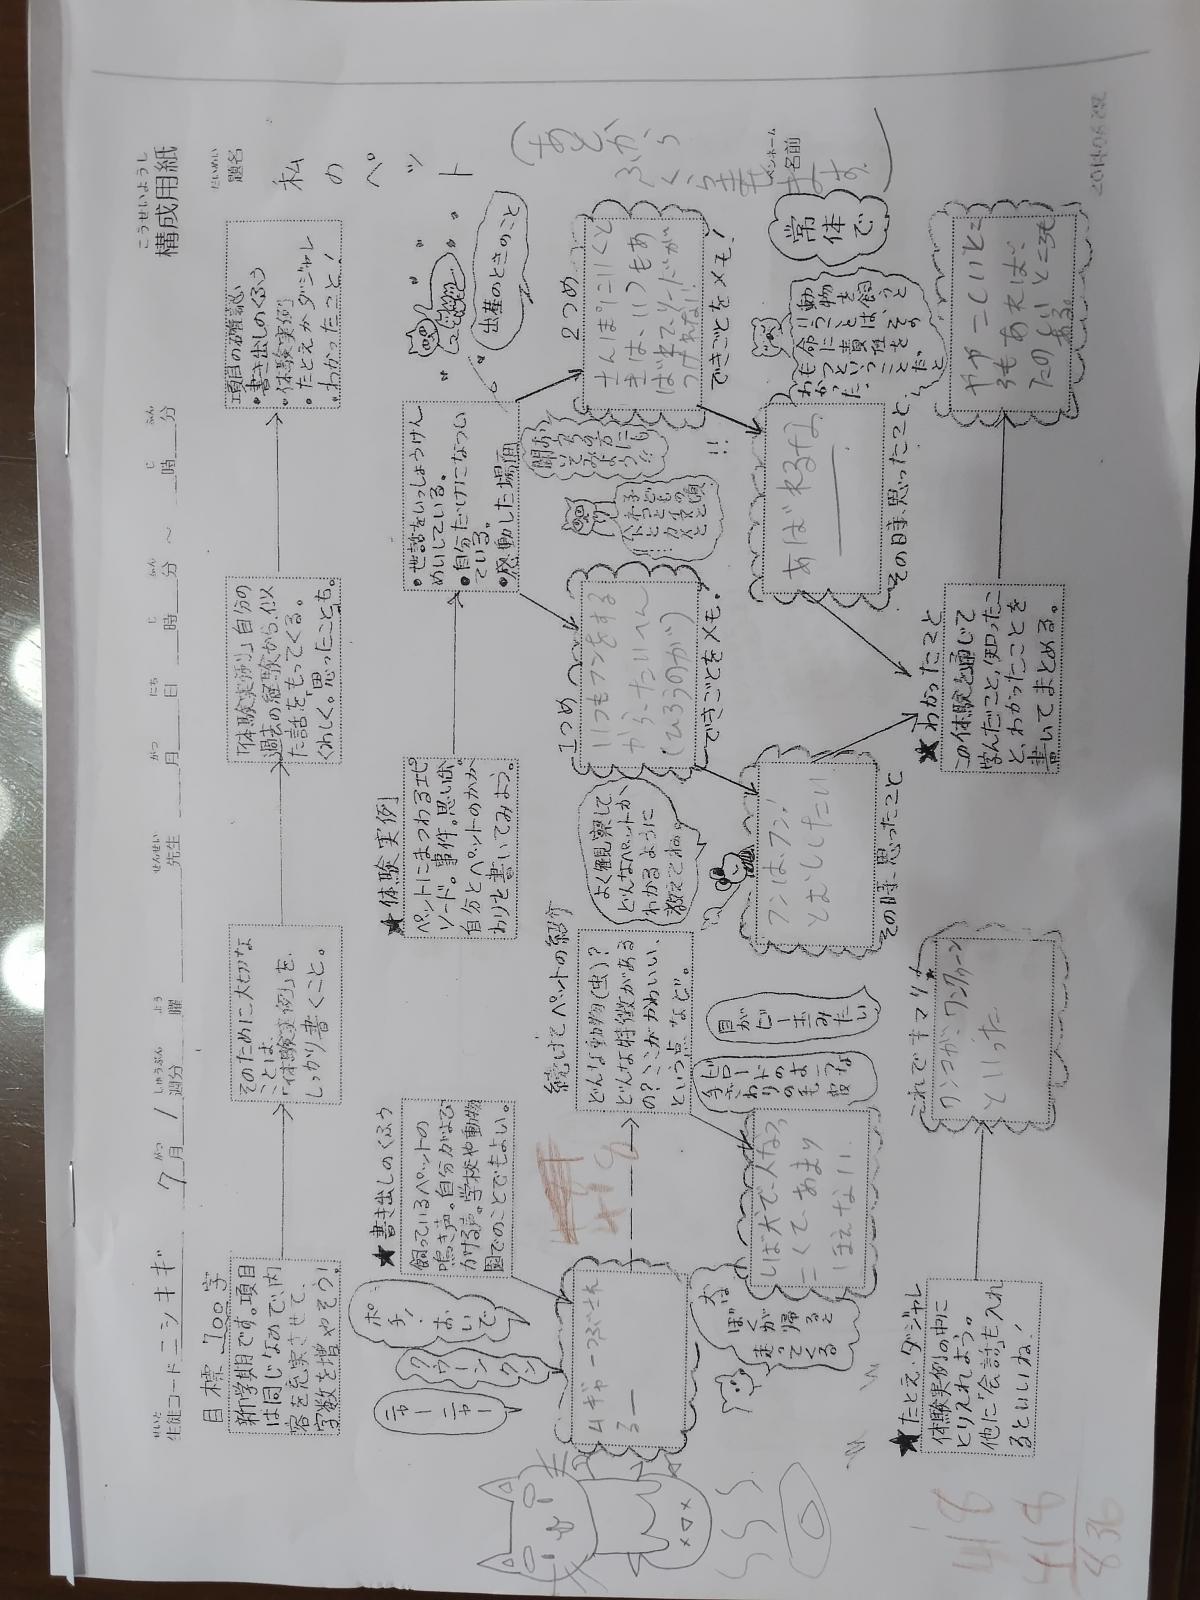 こうせいようし
構成用紙
せいと
生徒コード ニシキギ 7月 1週分 曜 先生 月 日 時 分 ～ 時 分
がつ しゅうぶん よう せんせい がつ にち じ ふん じ ふん
だいめい
題名
私のペット
ペンネーム
名前
目標 700字
新学期です。項目
は同じなので、内
容を充実させて、
字数を増やそう！
そのために大切な
ことは、
「体験実例」を、
しっかり書くこと。
「体験実例」自分の
過去の経験から、似
た話をもってくる。
くわしく。思ったことも。
項目の確認
・書き出しのくふう
・体験実例
・たとえかダジャレ
・わかったこと！
★書き出しのくふう
飼っているペットの
鳴き声。自分がよび
かける声。学校や動物
園でのことでもよい。
ポチ！
おいで
クウーン
クン
ニャー
ニャー
ムギャーつぶされ
るー
418
続けて ペットの紹介
どんな動物(虫)？
どんな特徴がある
の？ここがかわいい、
という点 など。
よく観察して、
どんなペットか、
わかるように
教えてね。
犬は
ぼくが
帰ると
走って
くる
しば犬で人なつ
こくて、あまり
ほえない。
目が
ビー玉
みたい
★体験実例
ペットにまつわるエピ
ソード。事件。思い出。
自分とペットのかか
わりを書いてみよう。
・世話をいっしょうけん
めいしている。
・自分だけになつい
ている。
・感動した場面
出産のときのこと
1つめ
いつもフンをする
から、たいへん
(ひろうのが)
できごとをメモ。
フンはフン！
とむししたい
その時、思ったこと
2つめ
さんぽに行くと
きは、いつもあ
ばれてリードが
つけれない！
できごとをメモ！
その時、思ったこと、
常体で
動物を飼うと
いうことは、その
命に責任を
もつということだと
わかった。
★わかったこと
この体験を通じて
学んだこと、知ったこ
と、わかったことを
書いてまとめる。
ややこしいとこ
ろもあれば、
たのしいところも
ある。
★たとえ・ダジャレ
体験実例の中に
とり入れよう。
他に「会話」も入れ
るといいね！
これでキマリ★
ワンコが、ワンクゥーン
といった
418
418
836